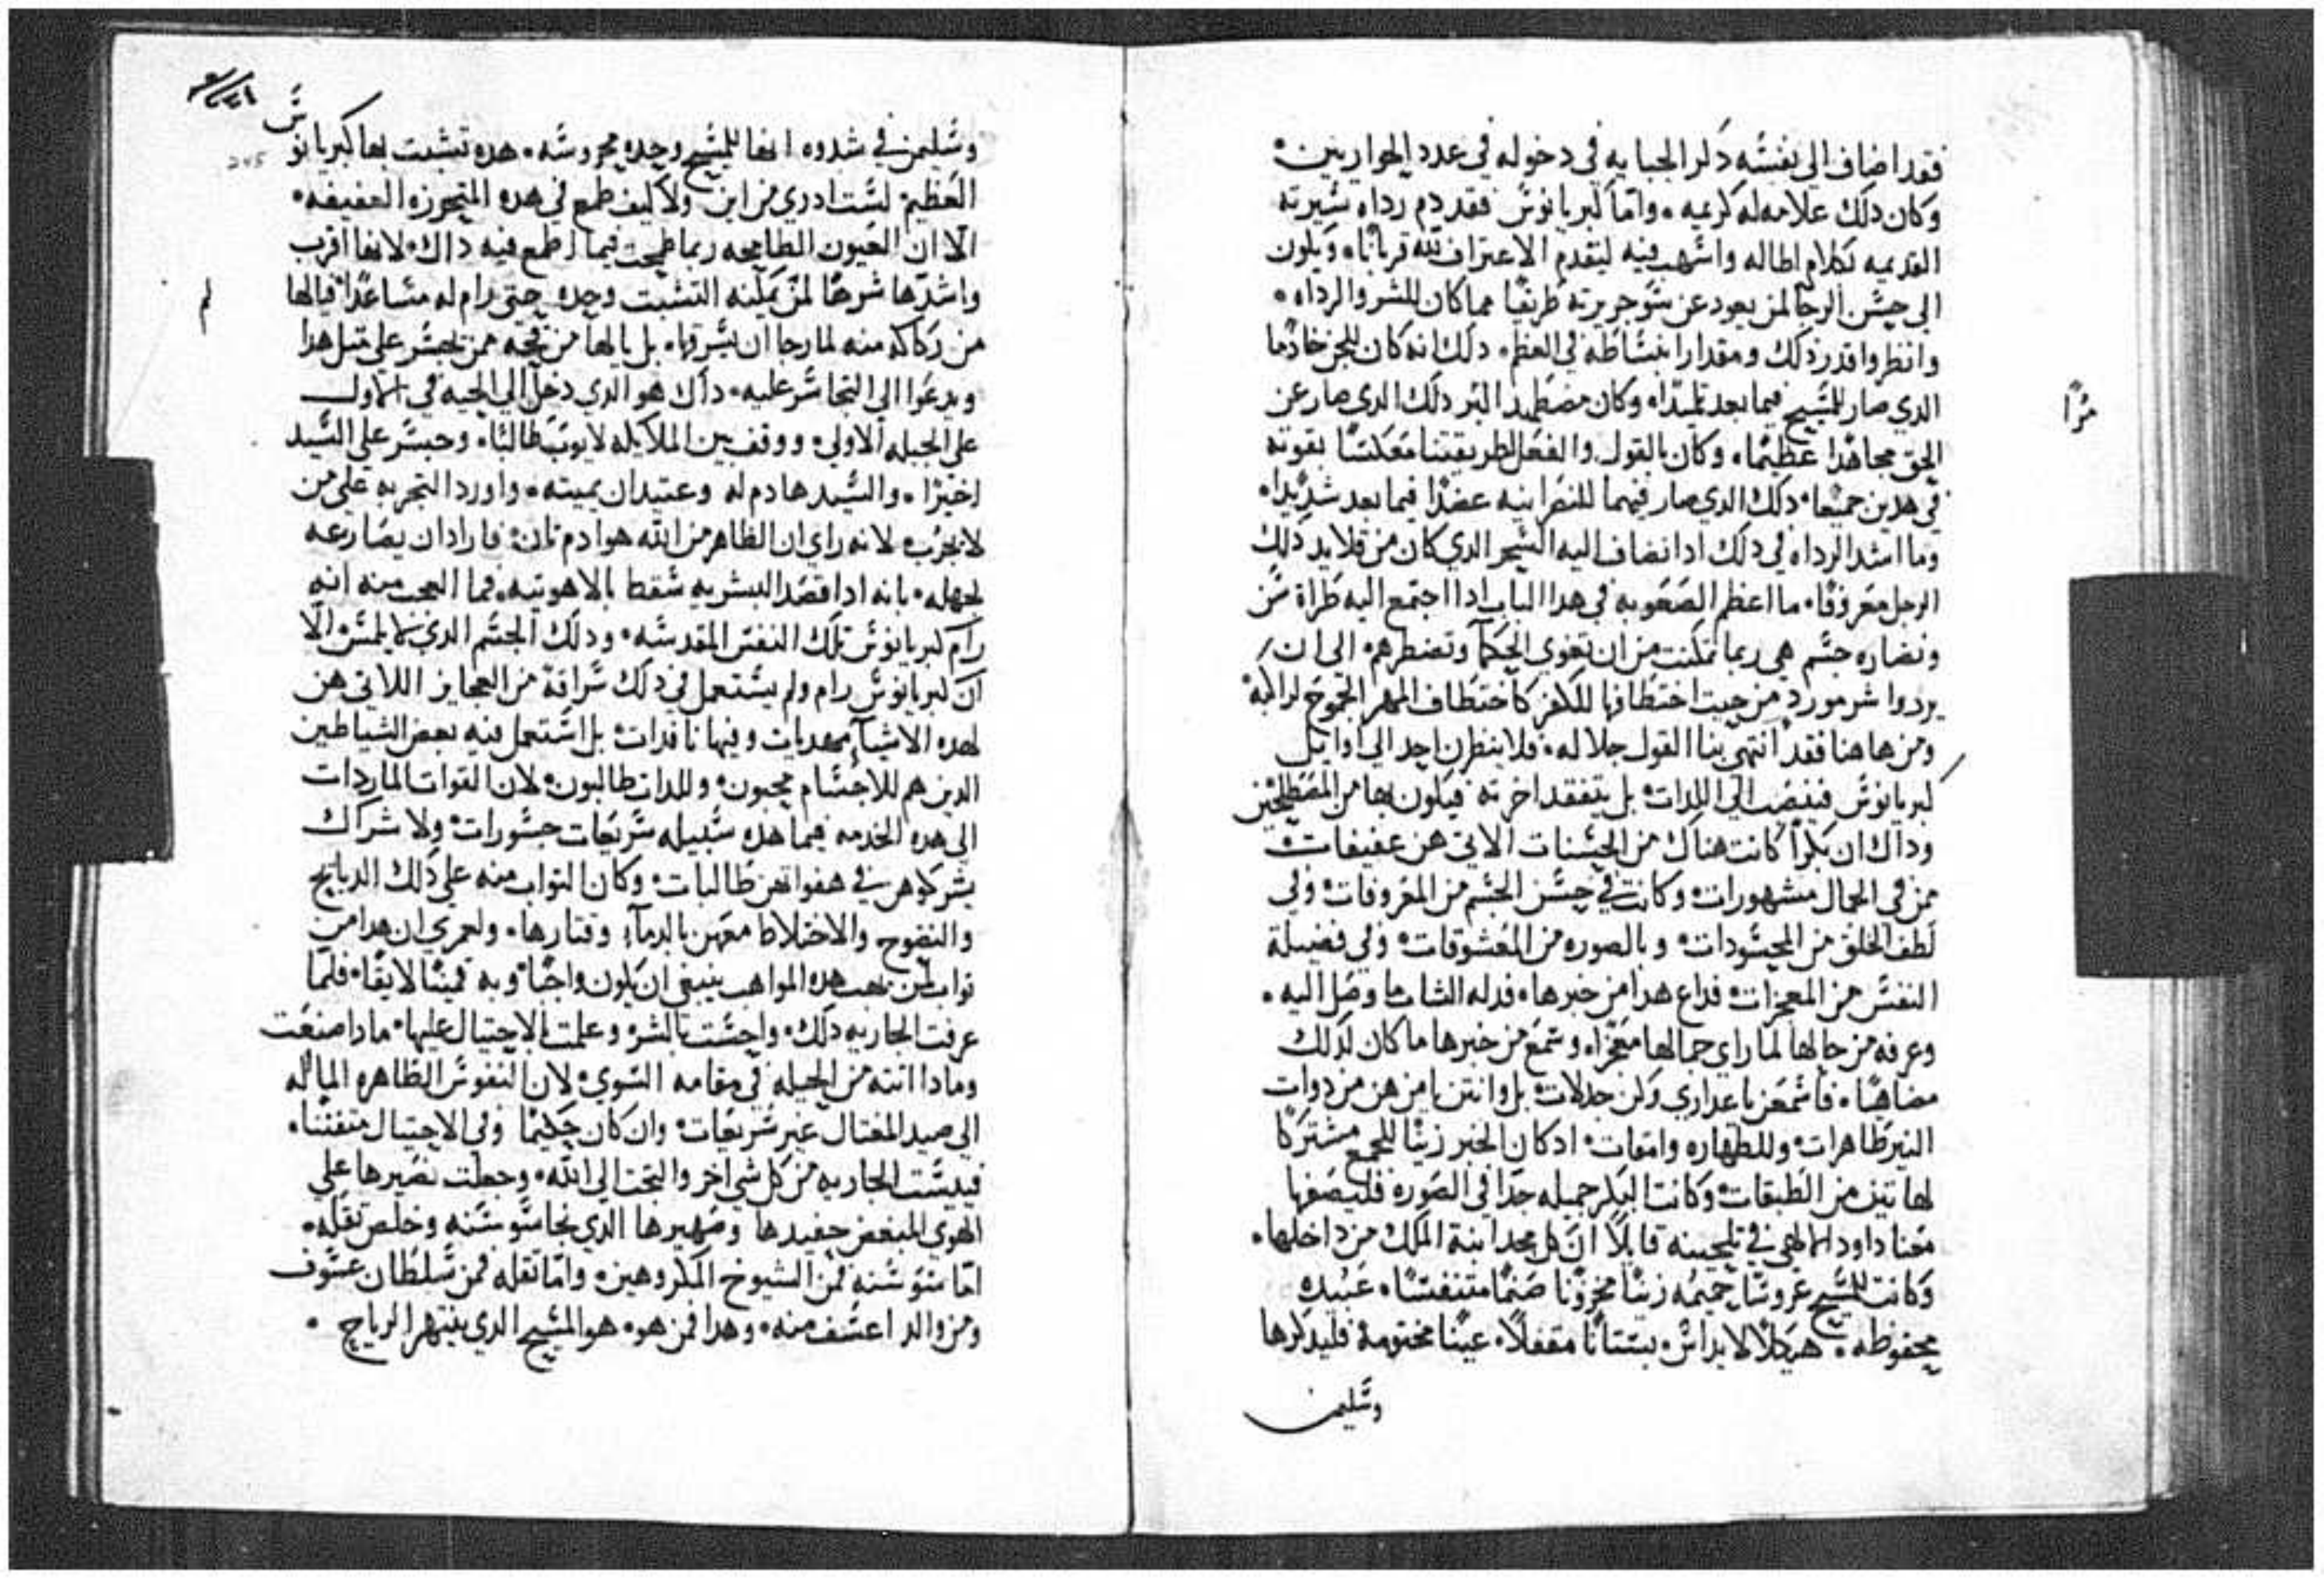 فقد اضاف الى نفسه دكر الجبايه في دخوله في عدد الحواريين
وكان دلك علامه له كريمه واما كبريانوس فقد دم رداه سيرته
القديمه بكلام اطاله واسهب فيه ليقدم الاعتراف لله قربانا ويكون
الى حسن الرجا لمن يعود عن سو جريرته طريقا مما كان للشر والرداه
وانظروا قدر دلك ومقدار انبساطه في العظم دلك انه كان للجن خادما
الدي صار للمسيح فيما بعد تلميدا وكان مضطهدا لبر دلك الدي صار عن
مرا
الحق مجاهدا عظيما وكان بالقول والفعل لطريقتنا معكسا بقوته
في هدين جميعا دلك الدي صار فيهما للنصرانيه عضدا فيما بعد شديدا
وما اشد الرداه في دلك ادا انضاف اليه السحر الدي كان من قلايد دلك
الرجل معروفا ما اعظم الصعوبه في هدا الباب ادا اجتمع اليه طراة سن
ونضاره جسم هي ربما تمكنت من ان تغوي الحكما وتضطرهم الى ان
يردوا شر مورد من حيت اختطافها للفكر كاختطاف المهر الجموح لراكبه
ومن هاهنا فقد انتهى بنا القول جلاله فلا ينظرن احد الى اوايل
كبريانوس فينصب الى اللدات بل يتفقد اخرته فيكون بها من المصطلحين
وداك ان بكرا كانت هناك من الحسنات الاتي هن عفيفات
ممن في الجمال مشهورات وكانت في حسن الجسم من المعروفات وفي
لطف الخلق من المحسودات وبالصوره من المعشوقات وفي فضيلة
النفس من المعجزات فداع هدا من خبرها فدله الشاب ما وصل اليه
وعرفه من حالها لما راى جمالها معجزا وسمع من خبرها ما كان لدلك
مضاهيا فاسمعن يا عداري وكن جدلات بل وانتن يا من هن من دوات
النير طاهرات وللطهاره وامقات ادكان الخبر زينا للجميع مشتركا
لهاتين من الطبقات وكانت البكر جميله جدا في الصوره فليصفها
معنا داود الالهي في تلحينه قايلا ان كل مجد ابنة الملك من داخلها
وكانت للمسيح عروسا حميمه زينا مخزونا صنما متنفسا عبيده
محفوظه هيكلا لا يداس بستانا مقفلا عينا مختومة فليدكرها
وسليمن
وسليمن في شدوه انها للمسيح وحده محروسه هده تشبت بها كبريانوس
العظيم لست ادري من اين ولا كيف طمع في هده المتحرزه العفيفه
الا ان العيون الطامحه ربما طمحت فيما لا طمع فيه داك لانها اقرب
واشدها شرها لمن يمكنه التشبت وحده حتى رام له مساعدا فيالها
لم
من ركاكه منه لما رجا ان يسرقها بل يالها من قحه ممن يجسر على متل هدا
ويدعوا الى التجاسر عليه داك هو الدي دخل الى الحيه في الاول
على الجبله الاولى ووقف بين الملايكه لايوب طالبا وجسر على السيد
اخيرا والسيد هادم له وعتيدان يميته واورد التجربه على من
لا يجرب لانه راى ان الظاهر من الله هو ادم تان فاراد ان يصارعه
لجهله بانه ادا قصد البشريه سقط بالاهوتيه فما العجب منه انه
رام كبريانوس تلك النفس المقدسه ودلك الجسم الدي لا يلمس الا
ان كبريانوس رام ولم يستعمل في دلك سراقة من العجايز اللاتي هن
لهده الاشيا معديات وفيها نافدات بل استعمل فيه بعض الشياطين
الدين هم للاجسام محبون وللدات طالبون لان القوات الماردات
الى هده الخدمه فيما هده سبيله سريعات جسورات ولا شراك
يشركوهن في هفواتهن طالبات وكان التواب منه على دلك الدبايح
والنضوح والاختلاط معهن بالدمآ وقتارها ولعمري ان هدا من
تواب لمن يهب هده المواهب ينبغي ان يكون واجبا وبه قمينا لايقا فلما
عرفت الجاريه دلك واحست بالشر وعلمت بالاحتيال عليها مادا صنعت
ومادا اتته من الحيله في مقامه السوي لان النفوس الطاهره الماله
الى صيد المغتال غير سريعات وان كان حكيما وفي الاحتيال متفننا
فيبست الجاريه من كل شي اخر والتجت الى الله وجعلت نصيرها على
الهوى المبغض حفيدها وصهيرها الدي نجا سوسنه وخلص تقله
اما سوسنه فمن الشيوخ المكروهين واما تقله فمن سلطان عسوف
ومن والد اعسف منه وهدا فمن هو هو المسيح الدي ينتهر الرياح